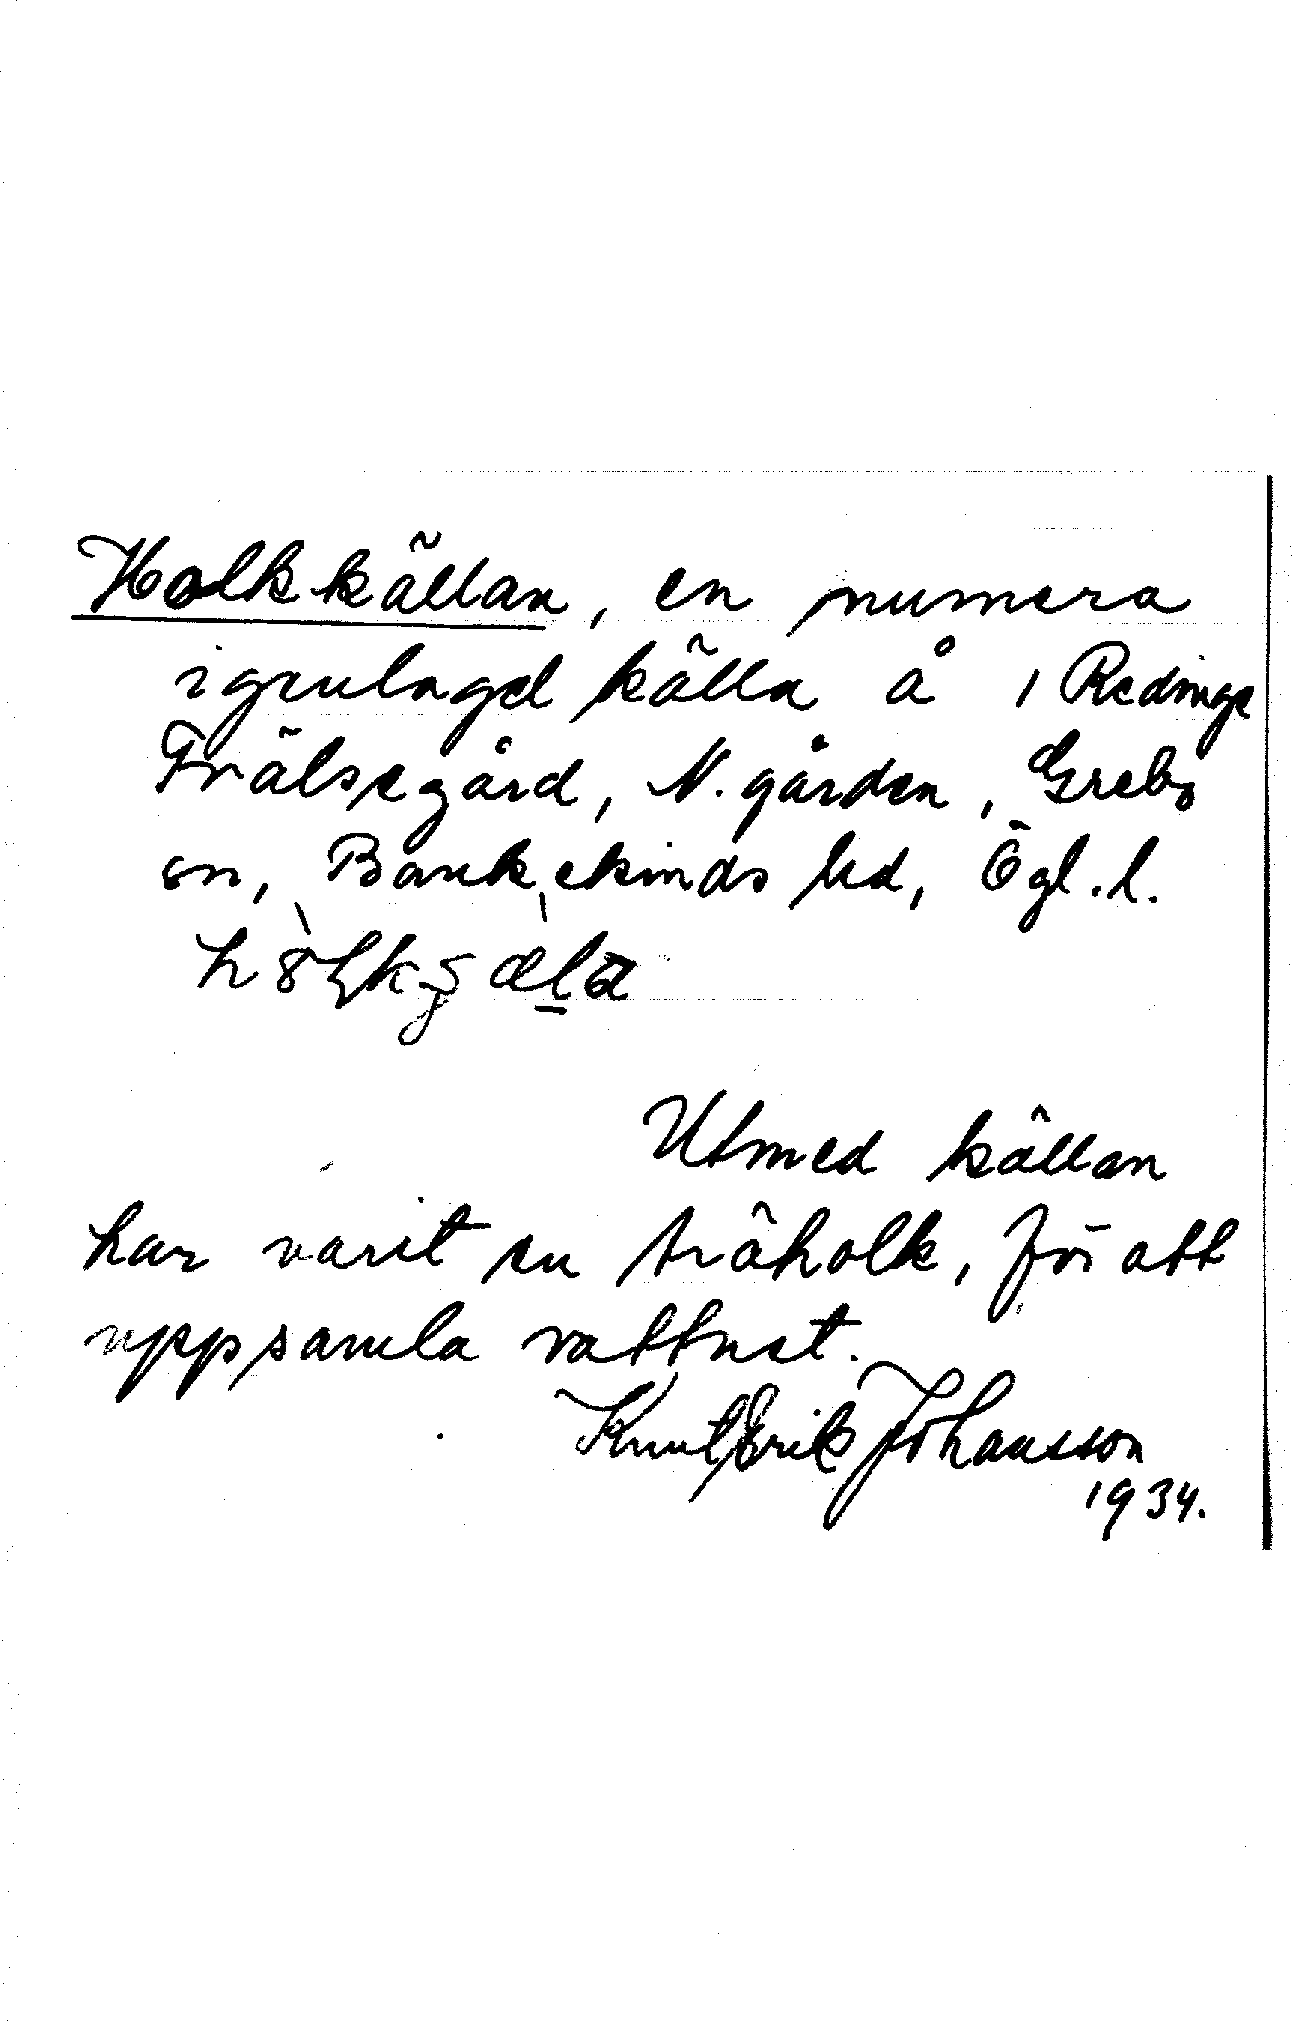 Holkkällan, en numera
igenlagd källa å 1 Redinge
Frälsegård, N. gården, Grebo
sn, Bankekinds hd, Ögl. l.
Utmed källan
har varit en träholk, för att
uppsamla vattnet.
Knut Erik Johansson
1934.